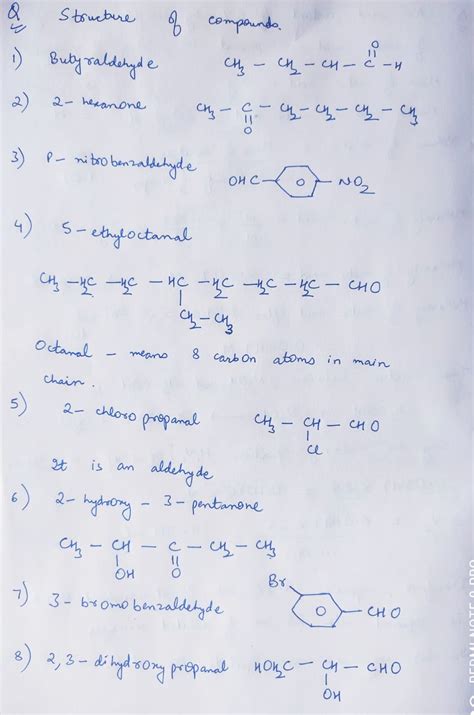 Q Structure of compounds.
1) Butyraldehyde CH3 - CH2 - CH - C - H
O
2) 2 - hexanone CH3 - C - CH2 - CH2 - CH2 - CH3
O
3) P - nitrobenzaldehyde OHC NO2
4) 5 - ethyloctanal
CH3 - H2C - H2C - HC - H2C - H2C - H2C - CHO
CH2 - CH3
Octanal - means 8 carbon atoms in main
chain.
5) 2 - chloropropanal CH3 - CH - CHO
Cl
It is an aldehyde
6) 2 - hydroxy - 3 - pentanone
CH3 - CH - C - CH2 - CH3
OH O
7) 3 - bromobenzaldehyde Br CHO
8) 2,3 - dihydroxypropanal HOH2C - CH - CHO
OH